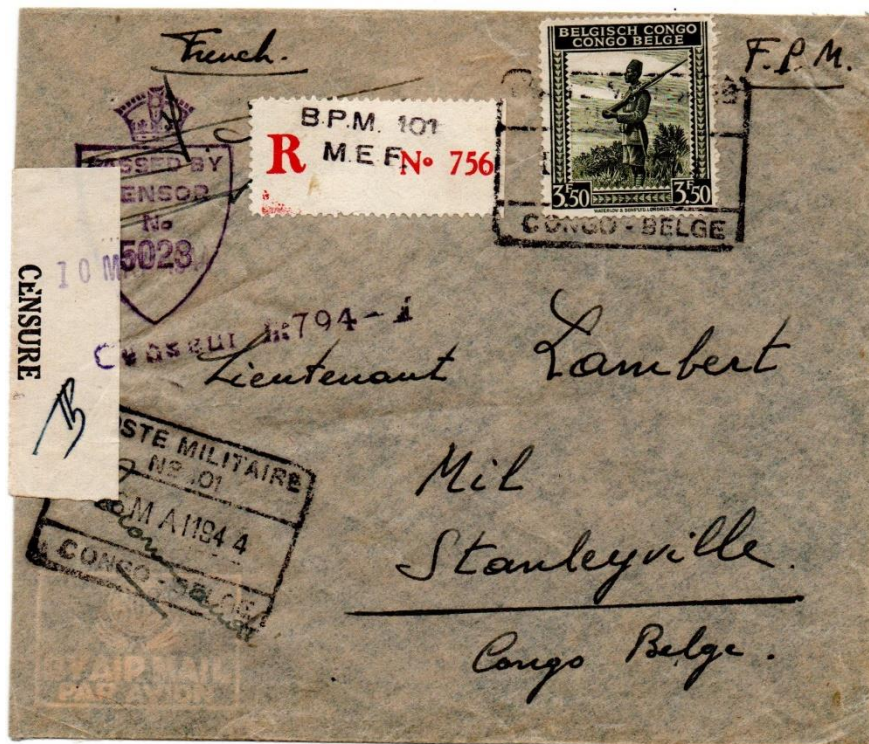 French.
F.P.M.
BELGISCH CONGO
CONGO BELGE
3F50
3F50
WATERLOW & SONS LTD. LONDRES
CONGO - BELGE
B.P.M. 101
M.E.F.
R
No 756
PASSED BY
CENSOR
No
5028
10 M
CENSURE
Censeur No 794-1
Lieutenant Lambert
Mil
Stanleyville
Congo Belge.
POSTE MILITAIRE
No 101
MAI 1944
CONGO - BELGE
BY AIR MAIL
PAR AVION